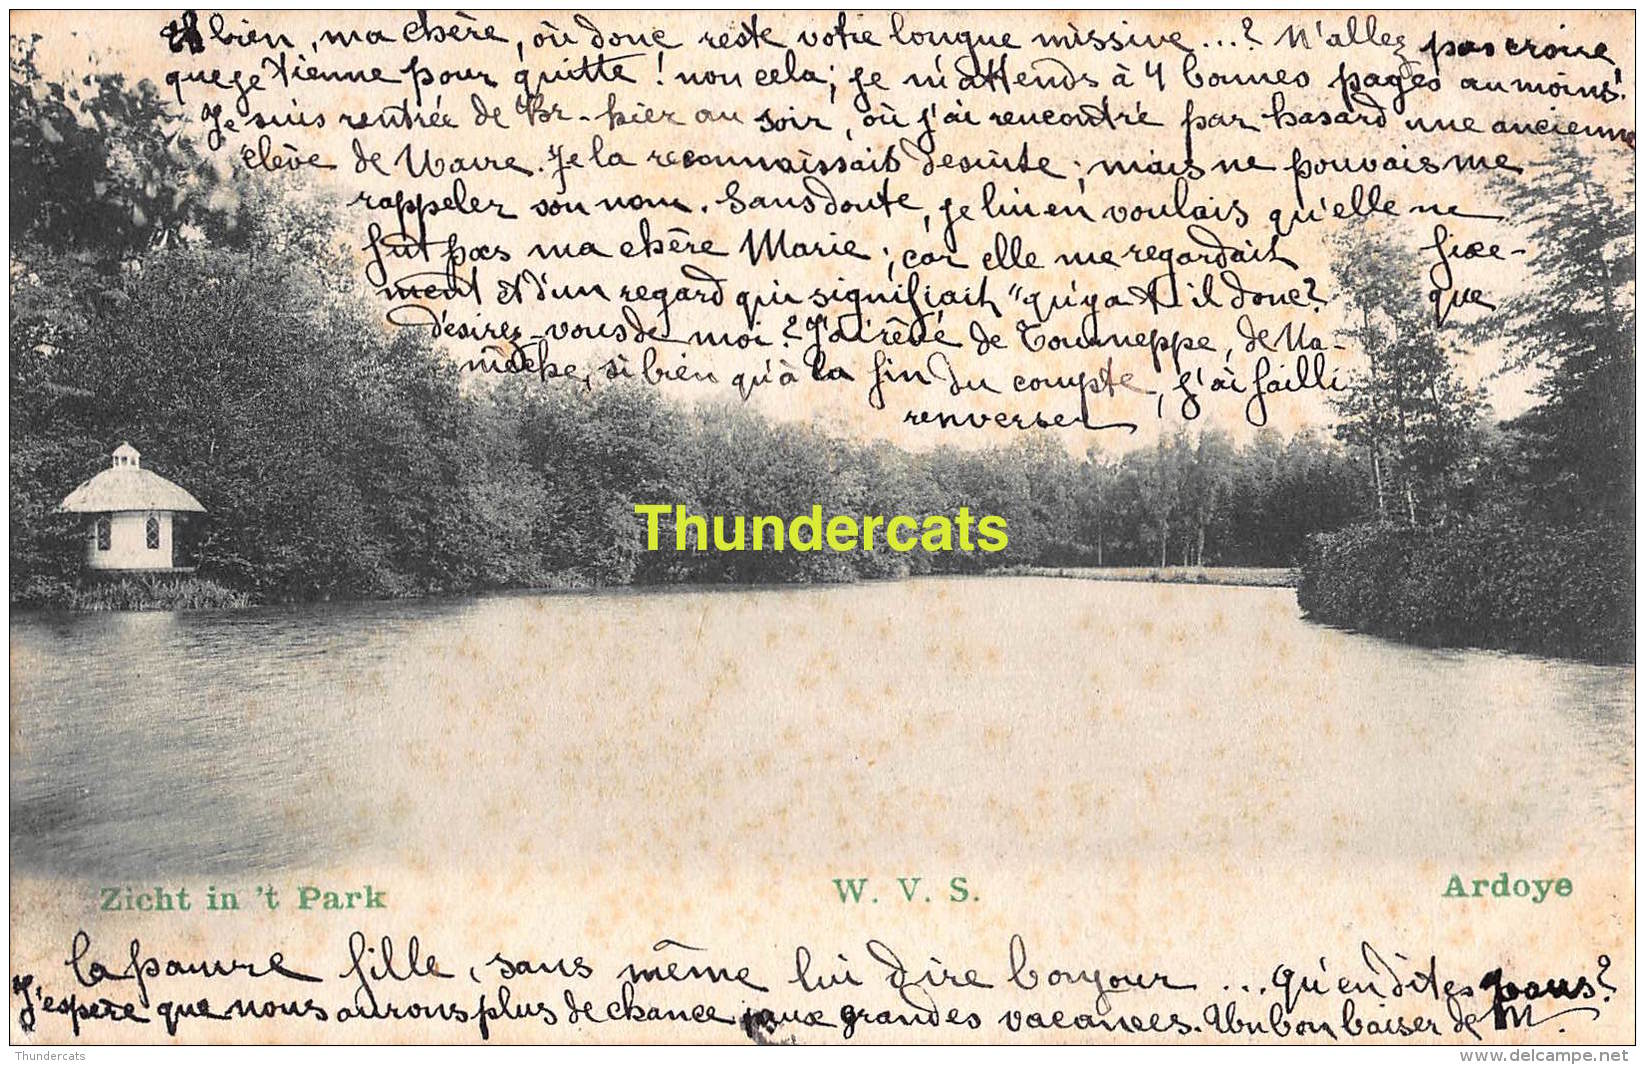 Eh bien, ma chère, où donc reste votre longue missive...? N'allez pas croire
que je tienne pour quitte! non cela; je m'attends à 4 bonnes pages au moins!
Je suis rentrée de Br. hier au soir, où j'ai rencontré par hasard une ancienne
élève de Wavre. Je la reconnaissais desuite; mais ne pouvais me
rappeler son nom. Sans doute, je lui en voulais qu'elle ne
fut pas ma chère Marie; car elle me regardait fixe-
ment et d'un regard qui signifiait "qu'y a t il donc? que
désirez-vous de moi? J'ai rêvé de Tourneppe, de Na-
mêche, si bien qu'à la fin du compte, j'ai failli
renverser
Thundercats
Zicht in 't Park
W. V. S.
Ardoye
la pauvre fille, sans même lui dire bonjour ... qu'en dites vous?
J'espère que nous aurons plus de chance aux grandes vacances. Un bon baiser de M.
Thundercats
www.delcampe.net